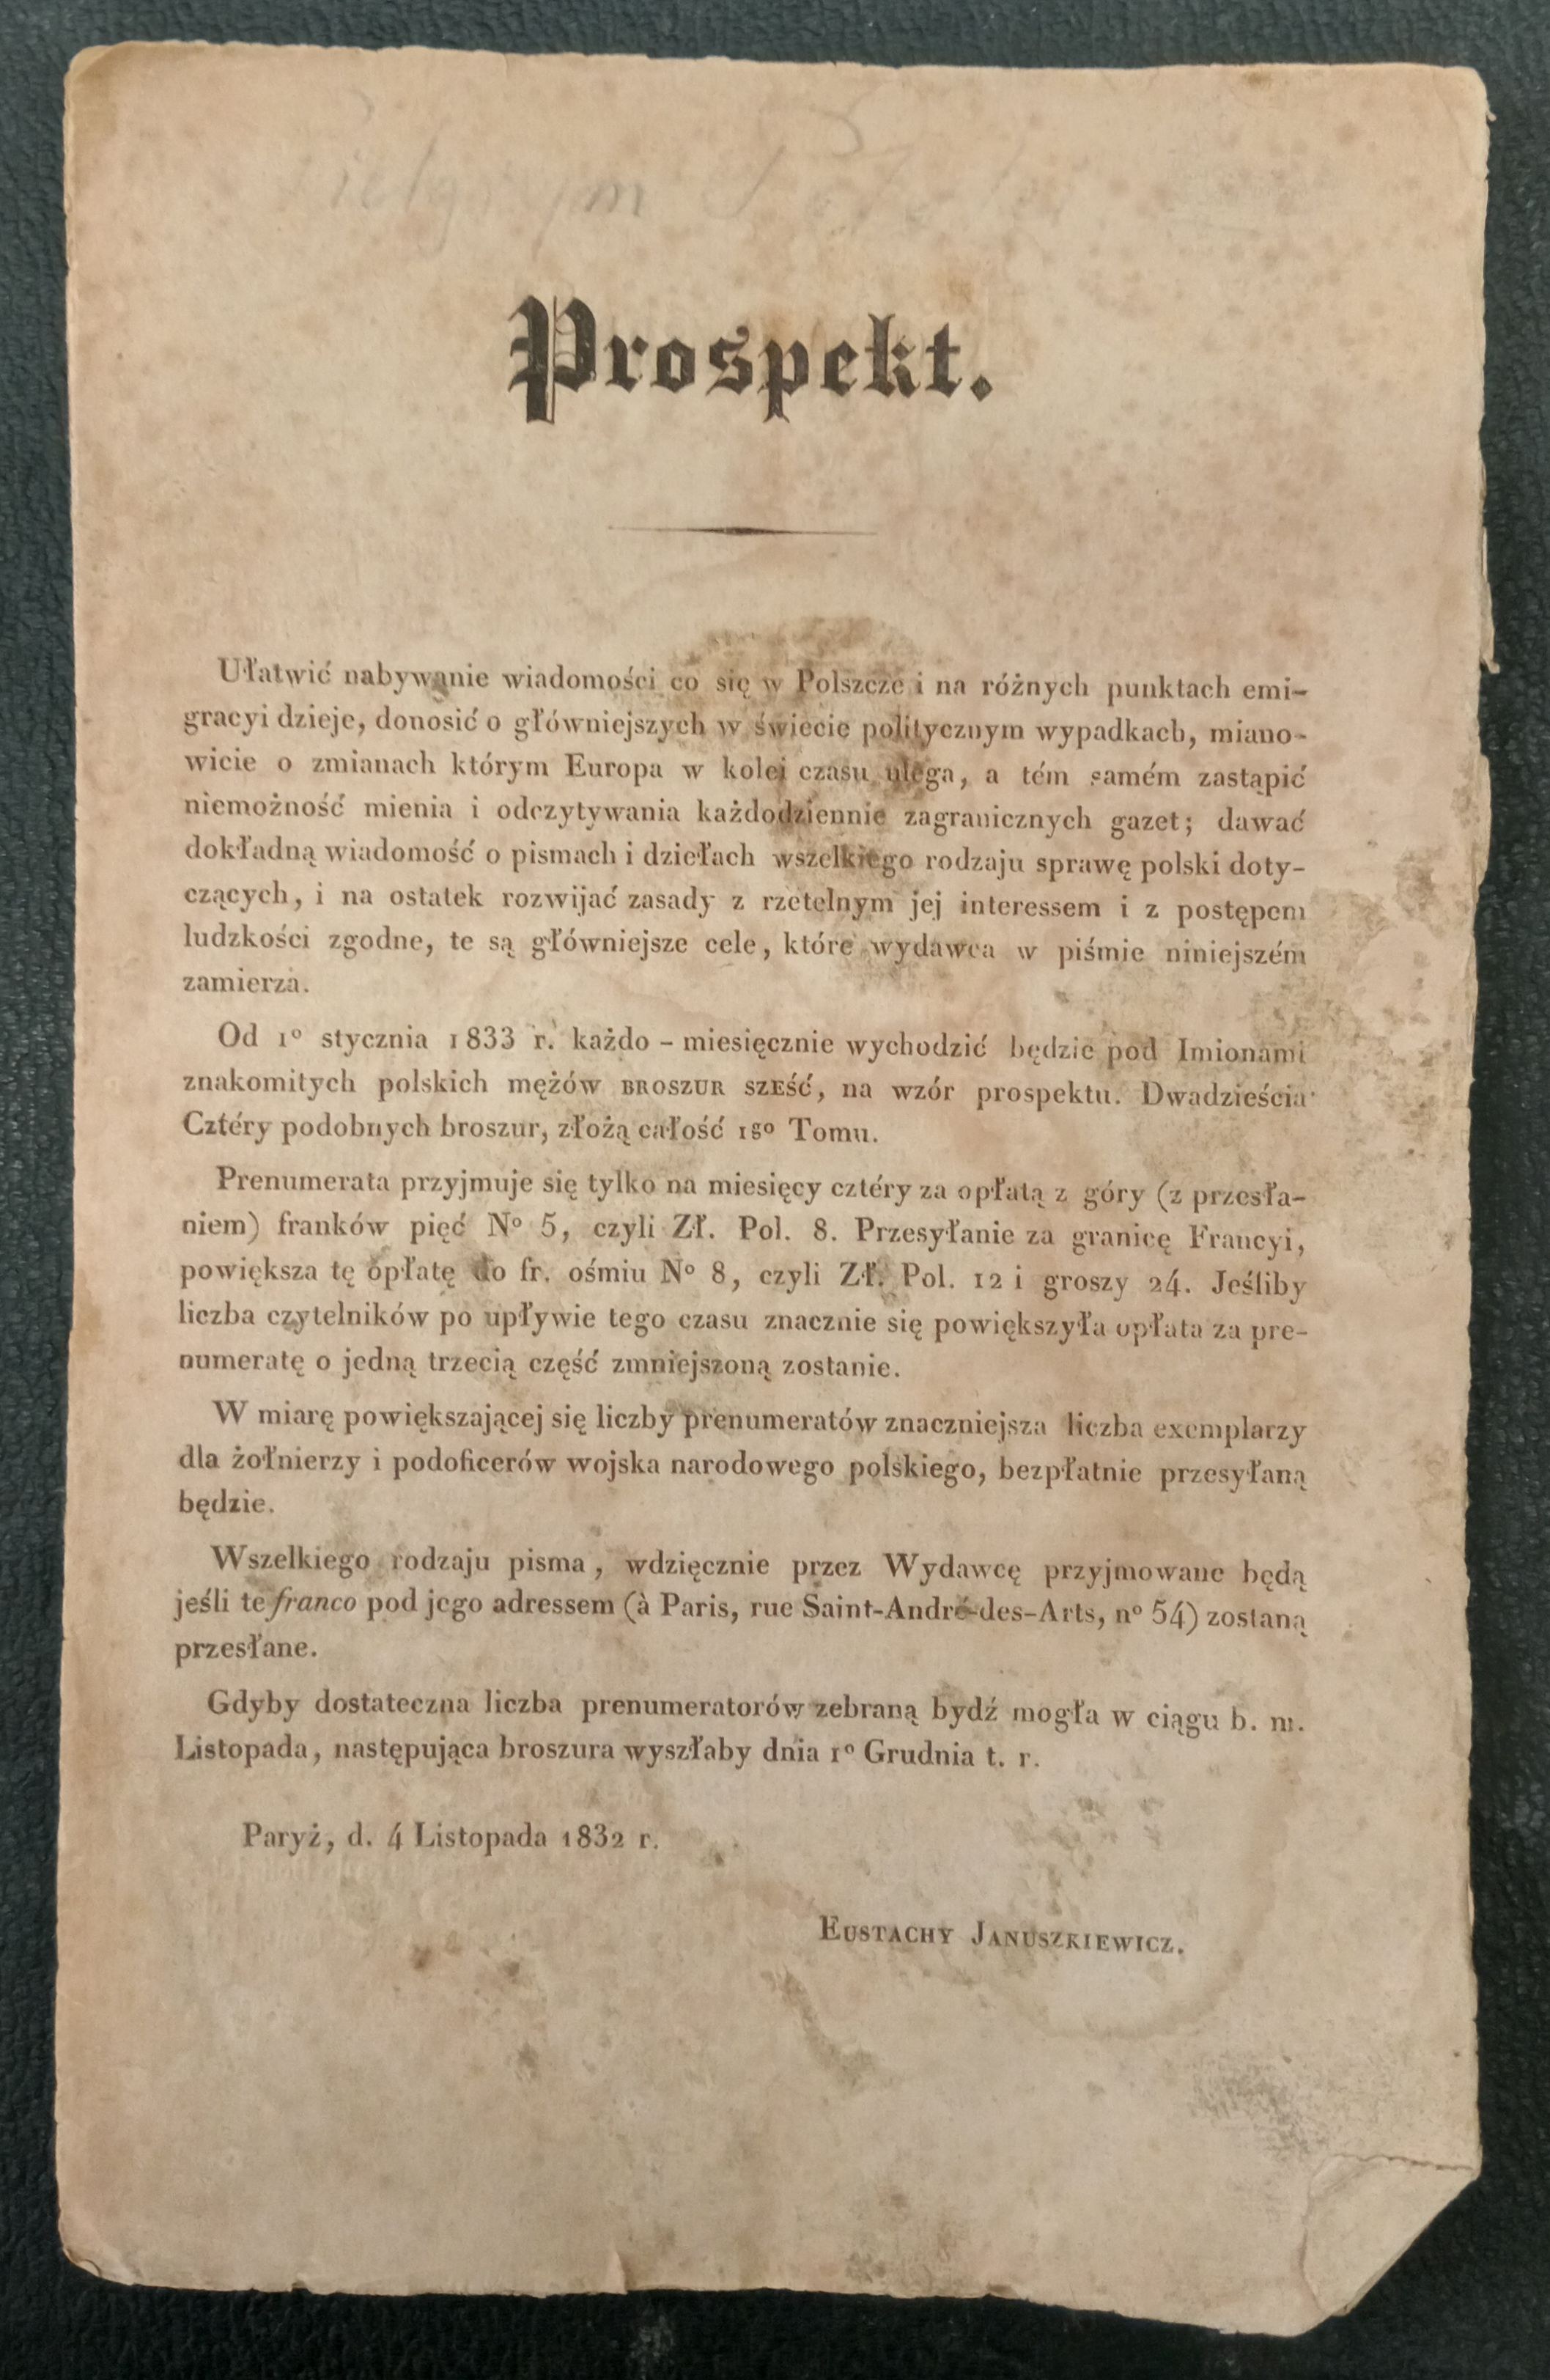 Pielgrzym
Prospekt.
Ułatwić nabywanie wiadomości co się w Polszcze i na różnych punktach emi-
gracyi dzieje, donosić o główniejszych w świecie politycznym wypadkach, miano-
wicie o zmianach którym Europa w kolei czasu ulega, a tém samém zastąpić
niemożność mienia i odczytywania każdodziennie zagranicznych gazet; dawać
dokładną wiadomość o pismach i dziełach wszelkiego rodzaju sprawę polski doty-
czących, i na ostatek rozwijać zasady z rzetelnym jej interessem i z postępem
ludzkości zgodne, te są główniejsze cele, które wydawca w piśmie niniejszém
zamierza.
Od 1º stycznia 1833 r. każdo-miesięcznie wychodzić będzie pod Imionami
znakomitych polskich mężów BROSZUR SZEŚĆ, na wzór prospektu. Dwadzieścia
Cztéry podobnych broszur, złożą całość 1gº Tomu.
Prenumerata przyjmuje się tylko na miesięcy cztéry za opłatą z góry (z przesła-
niem) franków pięć Nº 5, czyli Zł. Pol. 8. Przesyłanie za granicę Francyi,
powiększa tę opłatę do fr. ośmiu Nº 8, czyli Zł. Pol. 12 i groszy 24. Jeśliby
liczba czytelników po upływie tego czasu znacznie się powiększyła opłata za pre-
numeratę o jedną trzecią część zmniejszoną zostanie.
W miarę powiększającej się liczby prenumeratów znaczniejsza liczba exemplarzy
dla żołnierzy i podoficerów wojska narodowego polskiego, bezpłatnie przesyłaną
będzie.
Wszelkiego rodzaju pisma, wdzięcznie przez Wydawcę przyjmowane będą
jeśli te franco pod jego adressem (à Paris, rue Saint-André-des-Arts, nº 54) zostaną
przesłane.
Gdyby dostateczna liczba prenumeratorów zebraną bydź mogła w ciągu b. m.
Listopada, następująca broszura wyszłaby dnia 1º Grudnia t. r.
Paryż, d. 4 Listopada 1832 r.
EUSTACHY JANUSZKIEWICZ.